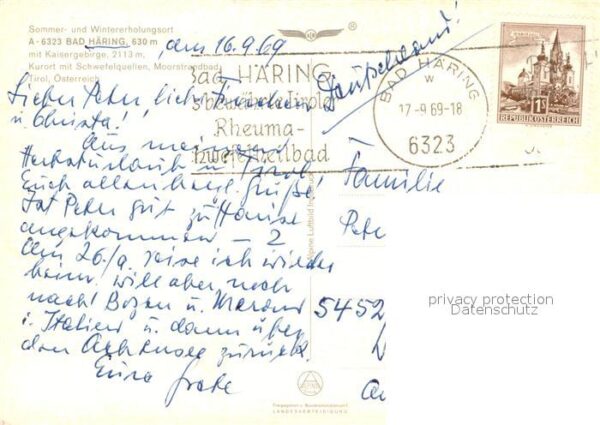 Sommer- und Wintererholungsort
A-6323 BAD HÄRING, 630 m
mit Kaisergebirge, 2113 m,
Kurort mit Schwefelquellen, Moorstrandbad
Tirol, Österreich
am 16.9.69
Deutschland!
Bad HÄRING
bewährte Tiroler
Rheuma-
Schwefelheilbad
BAD HÄRING
w
17-9.69-18
6323
1S
REPUBLIK ÖSTERREICH
Lieber Peter, liebe
u. Christa!
Aus meinem
Herbsturlaub in Tirol
Euch allen herzl. Grüße!
Ist Peter gut zu Hause
angekommen – ?
Am 26./9. reise ich wieder
heim, will aber noch
nach Bozen u. Meran
i. Italien u. dann über
den Achensee zurück.
Eure
Familie
Pete
5452
privacy protection
Datenschutz
Alpine Luftbild
LANDESVERTEIDIGUNG